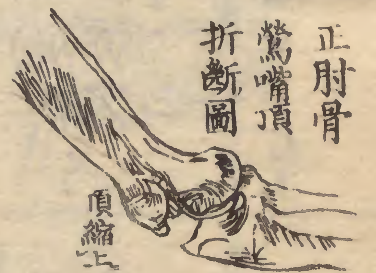 正肘骨
鶯嘴頂
折斷圖
頂縮上